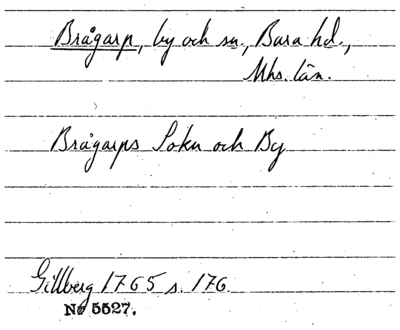 Brågarp, by och sn., Bara hd.,
Mhs. län.
Brågarps Sokn och By
Gillberg 1765 s. 176.
No 5527.